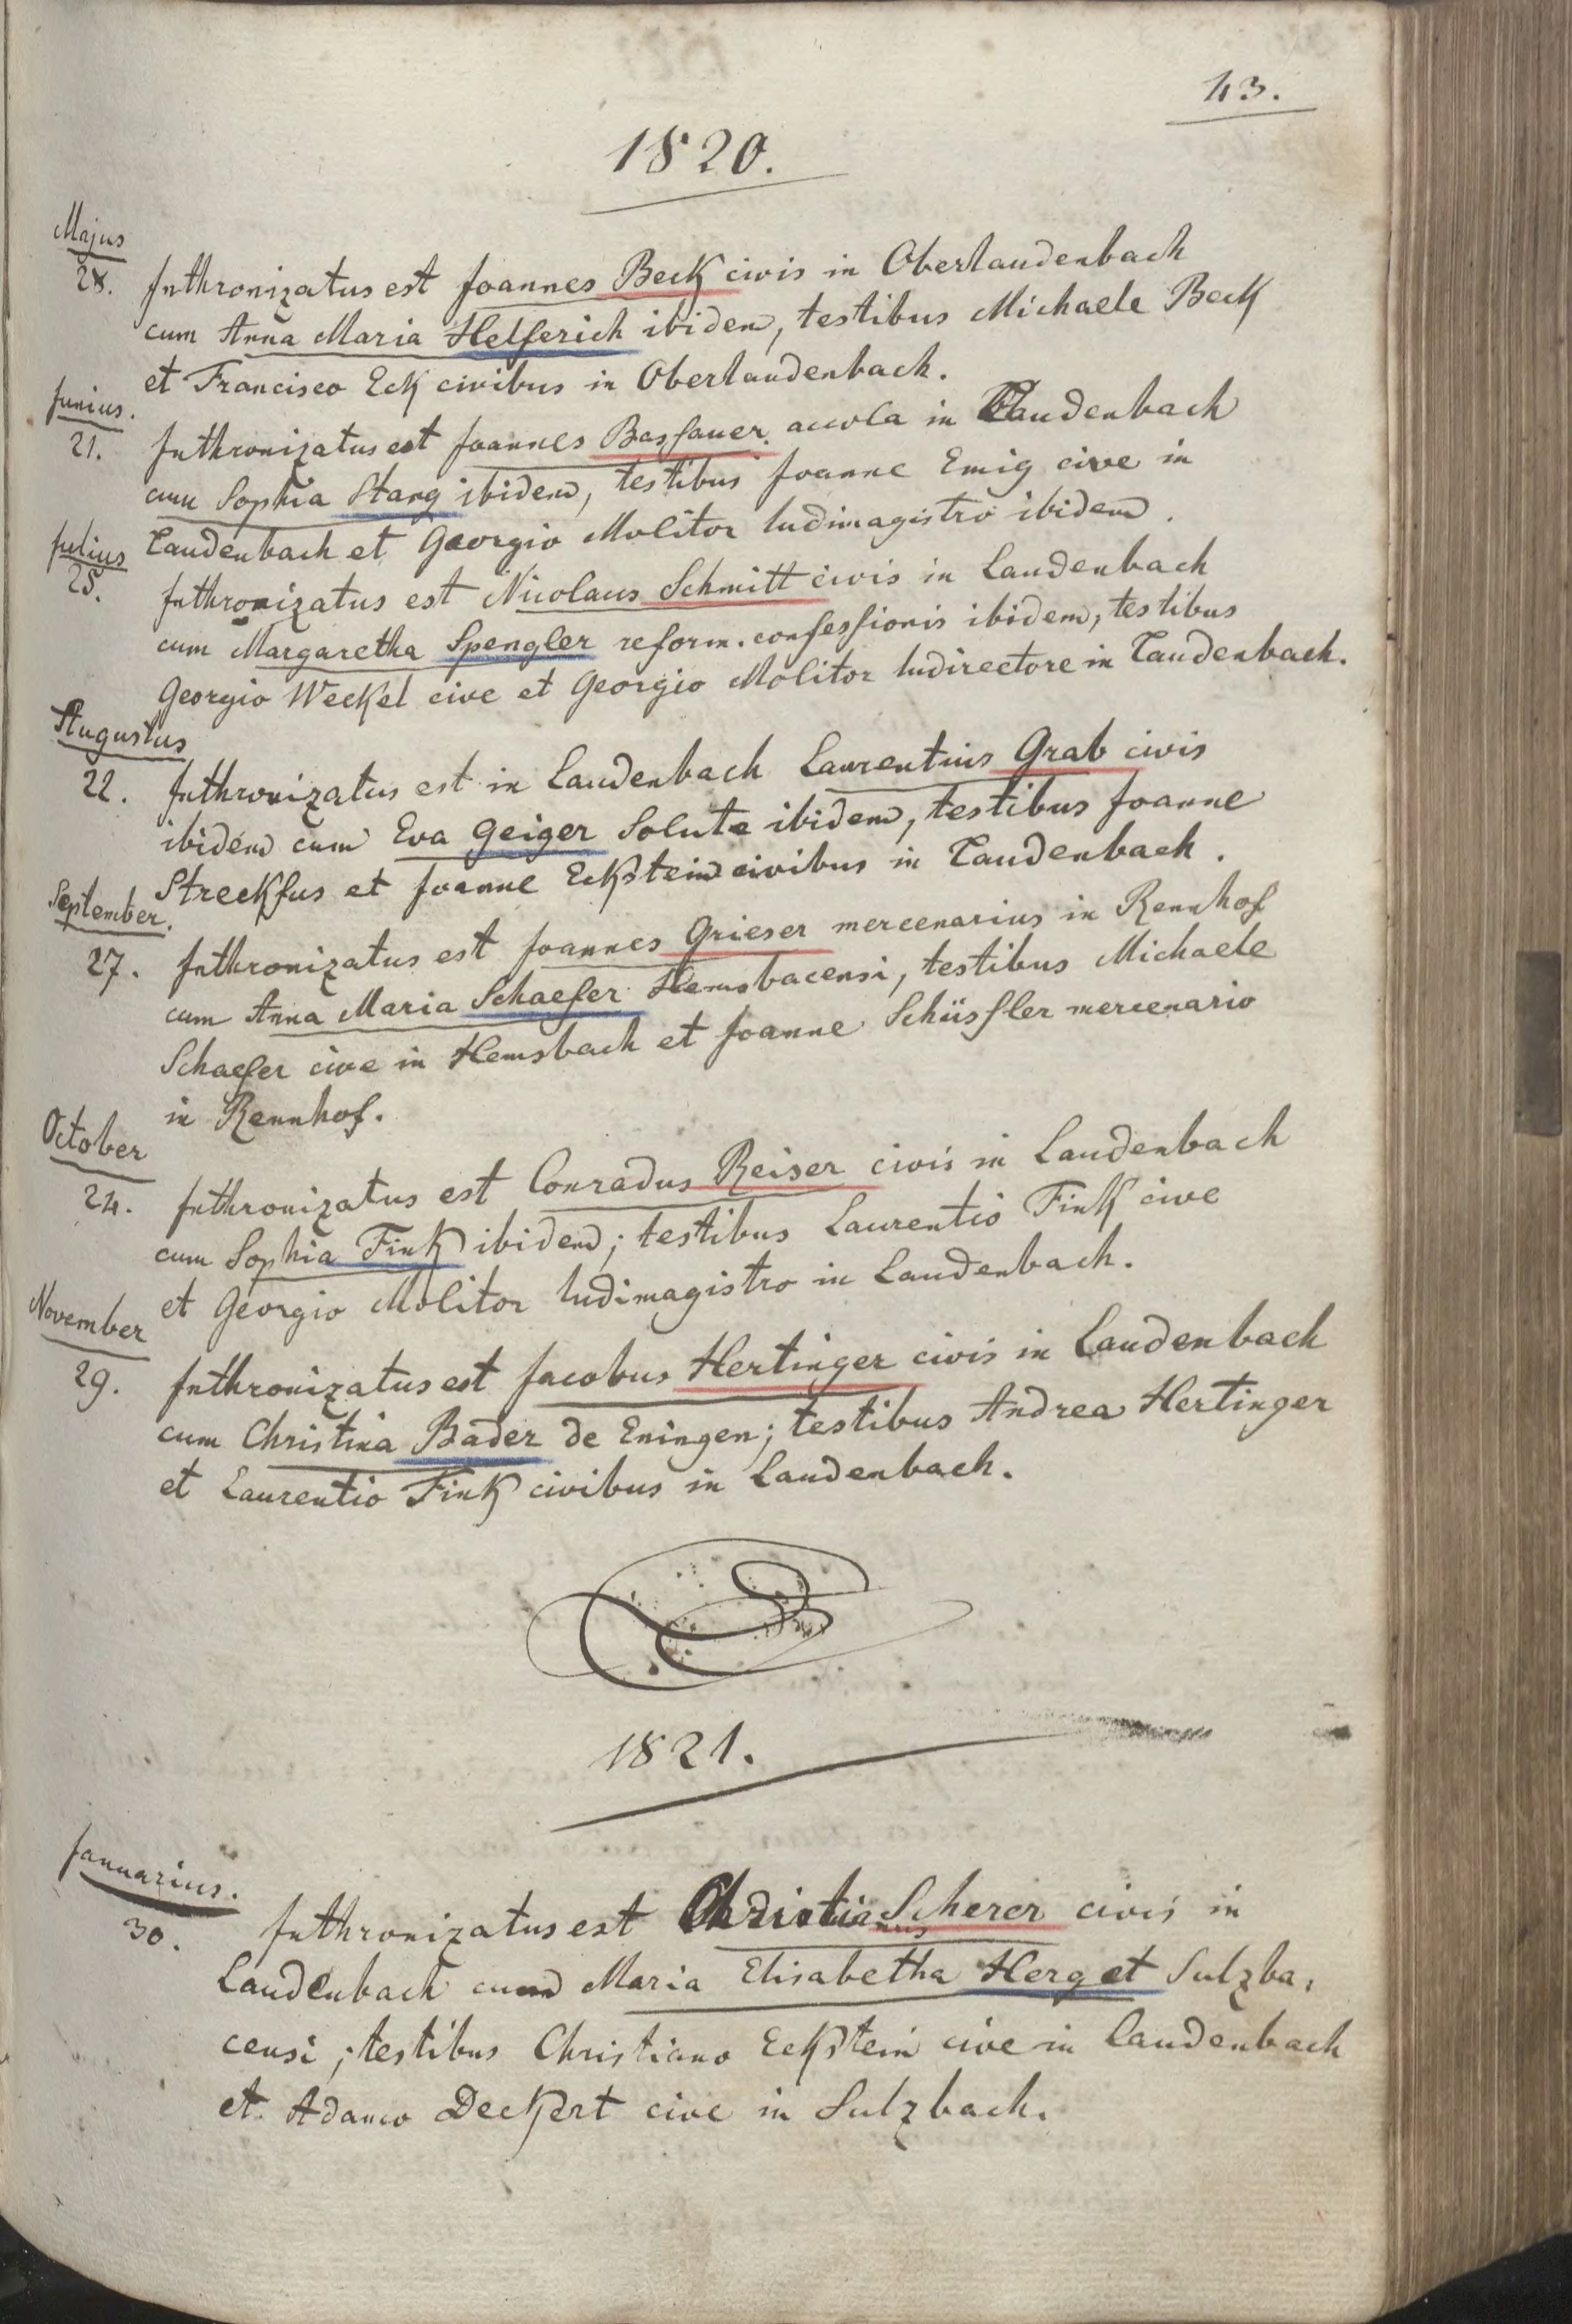 43.
1820.
Majus
28. Inthronizatus est Joannes Beck civis in Oberlaudenbach
cum Anna Maria Helferich ibidem, testibus Michaele Beck
et Francisco Eck civibus in Oberlaudenbach.
Junius.
21. Inthronizatus est Joannes Bassauer accola in Laudenbach
cum Sophia Stang ibidem, testibus Joanne Emig cive in
Laudenbach et Georgio Molitor ludimagistro ibidem.
Julius
25. Inthronizatus est Nicolaus Schmitt civis in Laudenbach
cum Margaretha Spengler reform. confessionis ibidem, testibus
Georgio Weckel cive et Georgio Molitor ludirectore in Laudenbach.
Augustus
22. Inthronizatus est in Laudenbach Laurentius Grab civis
ibidem cum Eva Geiger Soluta ibidem, testibus Joanne
Streckfus et Joanne Eckstein civibus in Laudenbach.
September.
27. Inthronizatus est Joannes Grieser mercenarius in Rennhof
cum Anna Maria Schaefer Hemsbacensi, testibus Michaele
Schaefer cive in Hemsbach et Joanne Schüssler mercenario
in Rennhof.
October
24. Inthronizatus est Conradus Reiser civis in Laudenbach
cum Sophia Fink ibidem; testibus Laurentio Fink cive
et Georgio Molitor ludimagistro in Laudenbach.
November
29. Inthronizatus est Jacobus Hertinger civis in Laudenbach
cum Christina Bader de Eningen; testibus Andrea Hertinger
et Laurentio Fink civibus in Laudenbach.
1821.
Januarius.
30. Inthronizatus est Christianus Scherer civis in
Laudenbach cum Maria Elisabetha Herget Sulzba,
censi; testibus Christiano Eckstein cive in Laudenbach
et Adamo Deckert cive in Sulzbach.